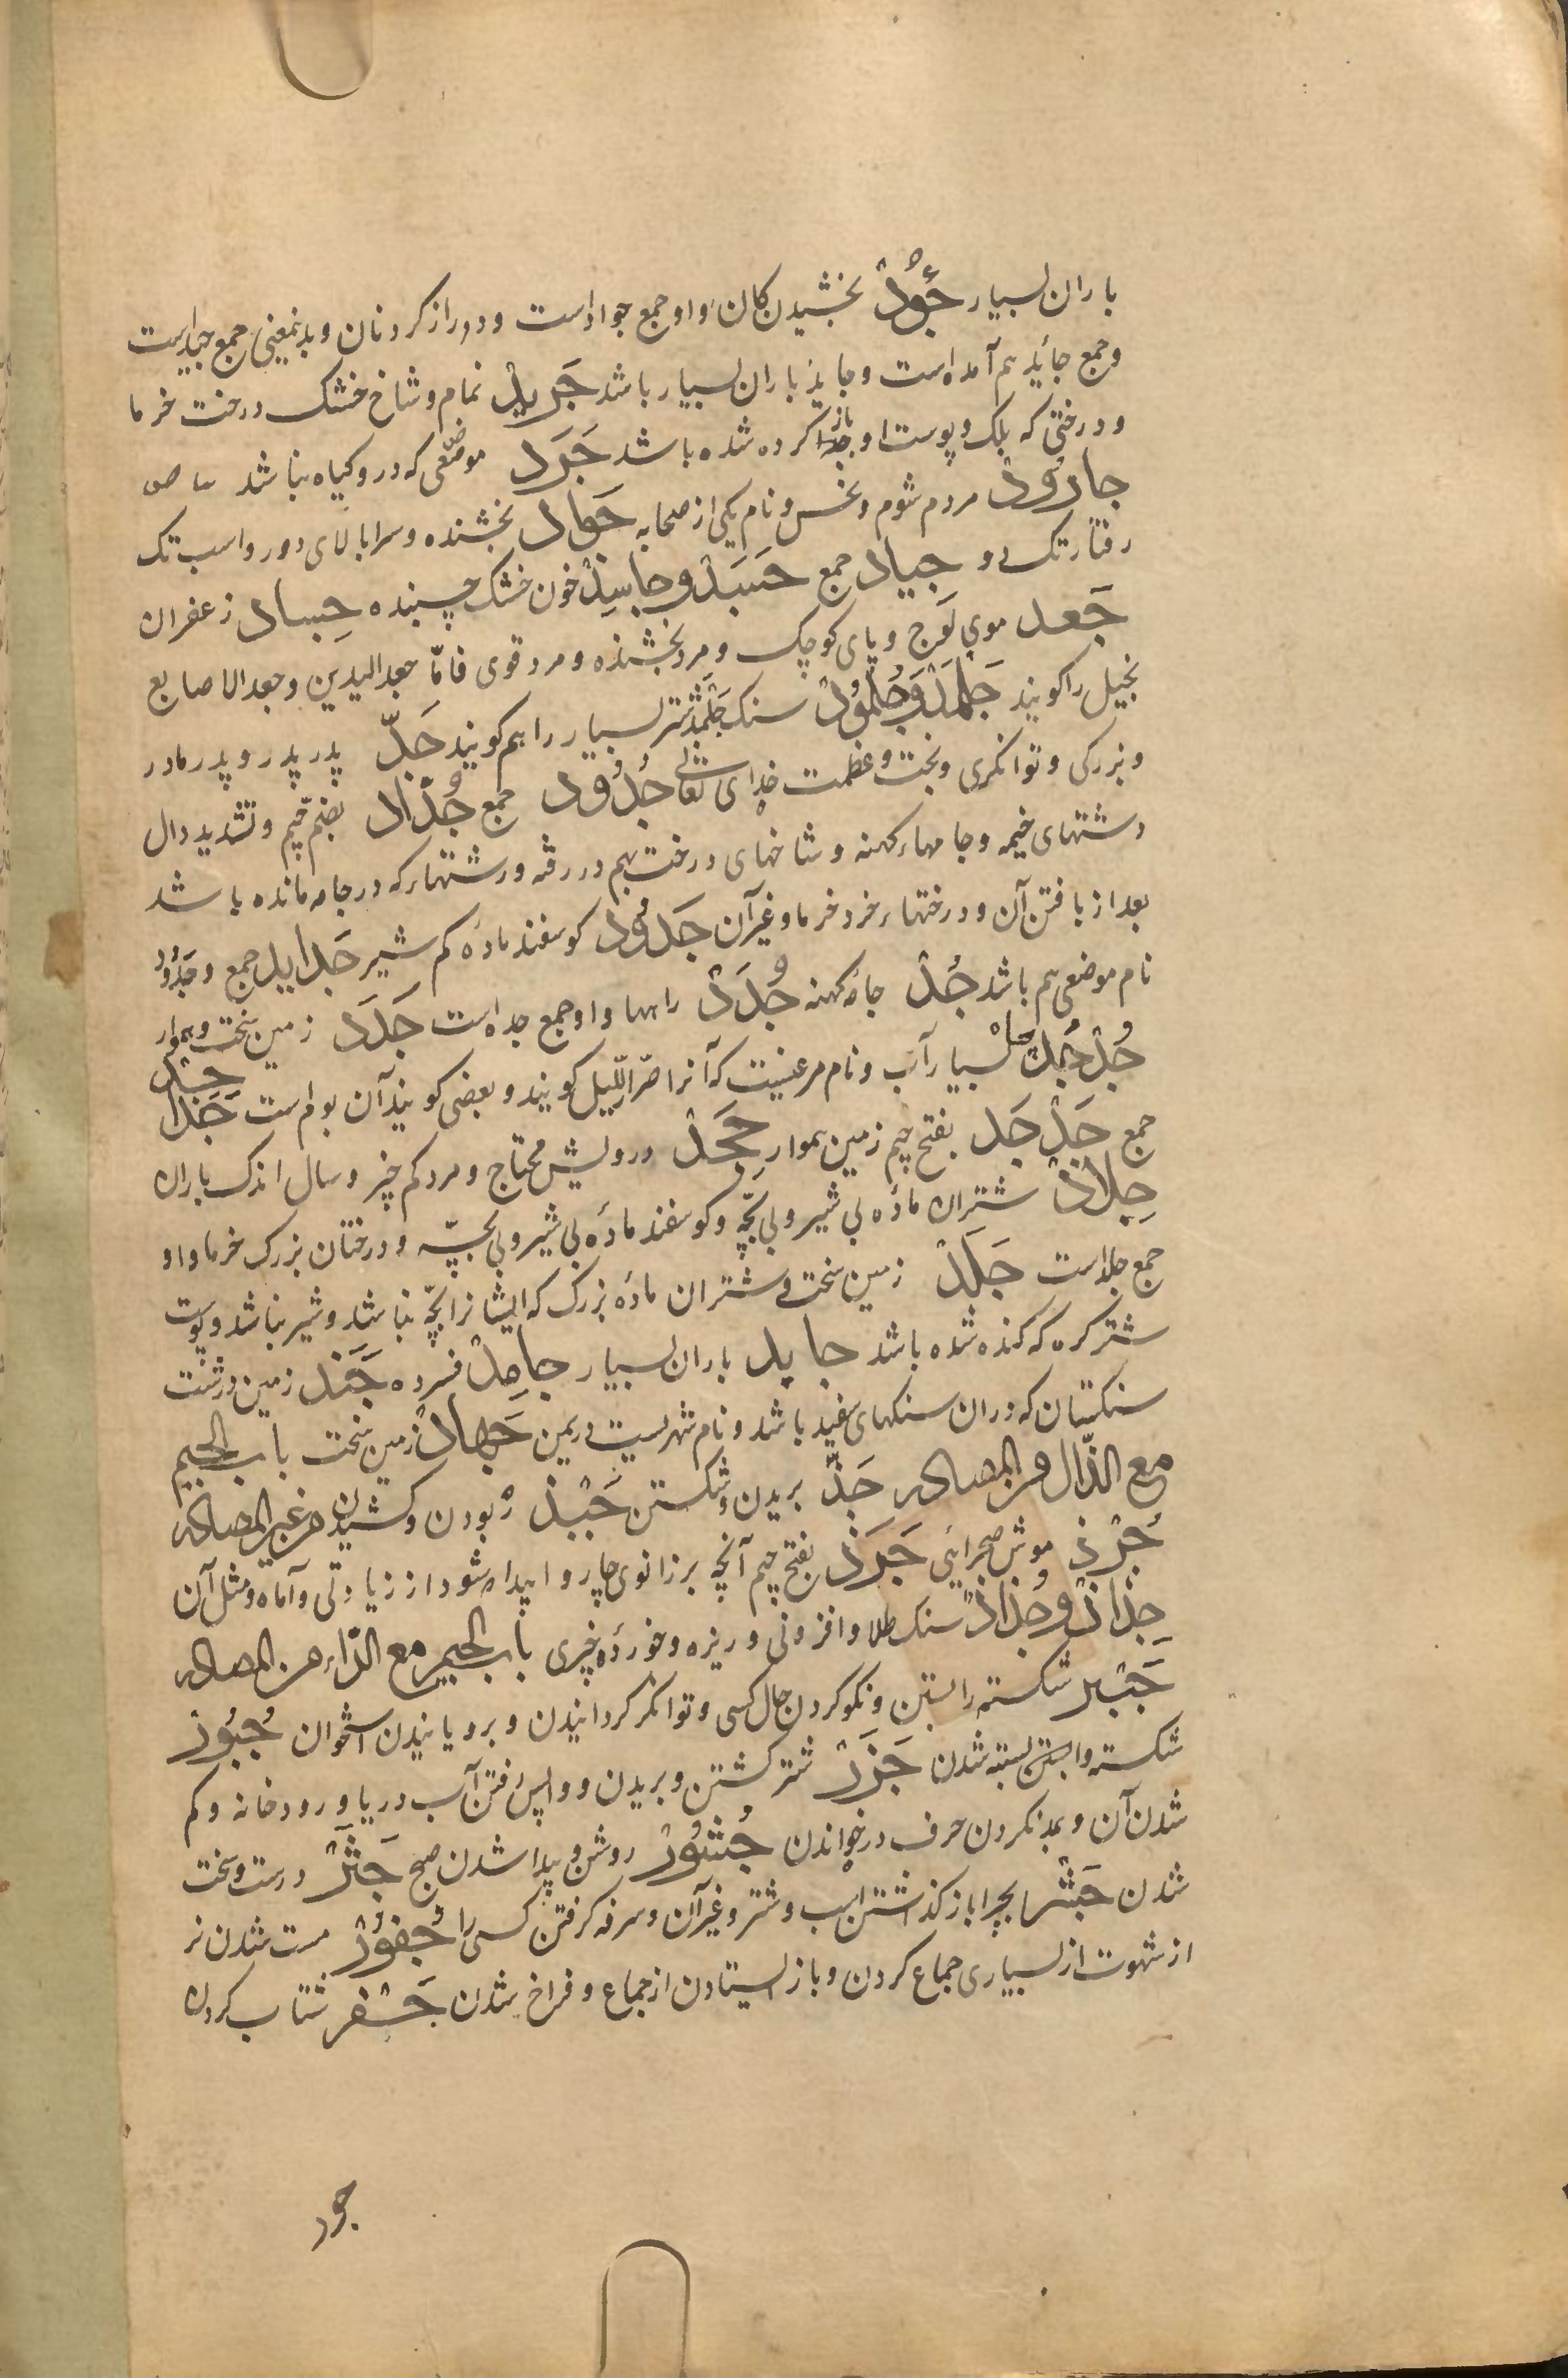 باران بسیار جُوْدْ بخشیدن کان و او جمع جواد است و دور از کردنان و بدینمعنی جمع جید است
و جمع جائد هم آمده است و جاید باران بسیار باشد جَرِید تمام و شاخ خشک درخت خرما
و درختی که بلک و پوست او باز کرده شده باشد جَرَد موضعی که در و کیاه نباشد
جارُوْدْ مردم شوم و نحس و نام یکی از صحابه جَواد بخشنده و سرابالای دور و اسب تک
رفتار تک و جیاد جمع جَسَدْ و جاسِدْ خون خشک چسبنده جِساد زعفران
جَعد موی کوج و پای کوچک و مرد بخشنده و مرد قوی فامّا جعد الیدین و جعد الاصابع
بخیل را کویند جَلْمَدْ و جُلْمُوْدْ سنک جَلْمَدْ شتر بسیار را هم کویند جَدّ پدر پدر و پدر مادر
و بزرکی و توانکری و بخت و عظمت خدای تعالی جُدُود جمع جُدّاد بضم جیم و تشدید دال
رشتهای خیمه و جامهاء کهنه و شاخهای درخت بهم در رفته و رشتهاء که در جامه مانده باشد
بعد از بافتن آن و درختهاء خرد خرما و غیر آن جَدُوْد کوسفند مادۀ کم شیر جَدایِد جمع و جَدُوْد
نام موضعی هم باشد جُدْ جامۀ کهنه جُدَدْ راهها و او جمع جده است جَدَد زمین سخت و هموار
جُدْجُدْ چاه بسیار آب و نام مرغیست که آنرا صرّار اللّیل کویند و بعضی کویند آن بوم است جَداجِدْ
جمع جَدْجَد بفتح جیم زمین هموار جَحِدْ درویش محتاج و مرد کم خیر و سال اندک باران
جِلادْ شتران مادۀ بی شیر و بی بچّه و کوسفند مادۀ بی شیر و بی بچّه و درختان بزرک خرما و او
جمع جلد است جَلَدْ زمین سخت و شتران مادۀ بزرک که ایشانرا بچّه نباشد و شیر نباشد و پوست
شتر کره که کنده شده باشد جاید باران بسیار جامِدْ فسرده جَنَد زمین درشت
سنکستان که دران سنکهای سفید باشد و نام شهریست در یمن جَهادْ زمین سخت باب الجیم
مع الذّال من المصادر جَذّ بریدن و شکستن جَبْذ ربودن و کشیدن من غیر المصادر
جُرَذ موش صحرائی جَرَذ بفتح جیم آنچه بر زانوی چاروا پیدا شود از زیادتی و آماه و مثل آن
جِذاذْ و جُذاذْ سنک طلا و افزونی و ریزه و خوردۀ چیزی باب الجیم مع الرّاء من المصادر
جَبْر شکسته را بستن و نکو کردن حال کسی و توانکر کردانیدن و برویانیدن استخوان جُبُوْر
شکسته وا بستن بسته شدن جَزْر شتر کشتن و بریدن و واپس رفتن آب دریا و رودخانه و کم
شدن آن و مد نکردن حرف در خواندن جُشُوْر روشن و پیدا شدن صبح جَشَرْ درست و سخت
شدن جَشْر بچرا باز کذاشتن اسب و شتر و غیر آن و سرفه کرفتن کسی را جُفُوْر مست شدن نر
از شهوت از بسیاری جماع کردن و باز ایستادن از جماع و فراخ شدن جَفْر شتاب کردن
جور